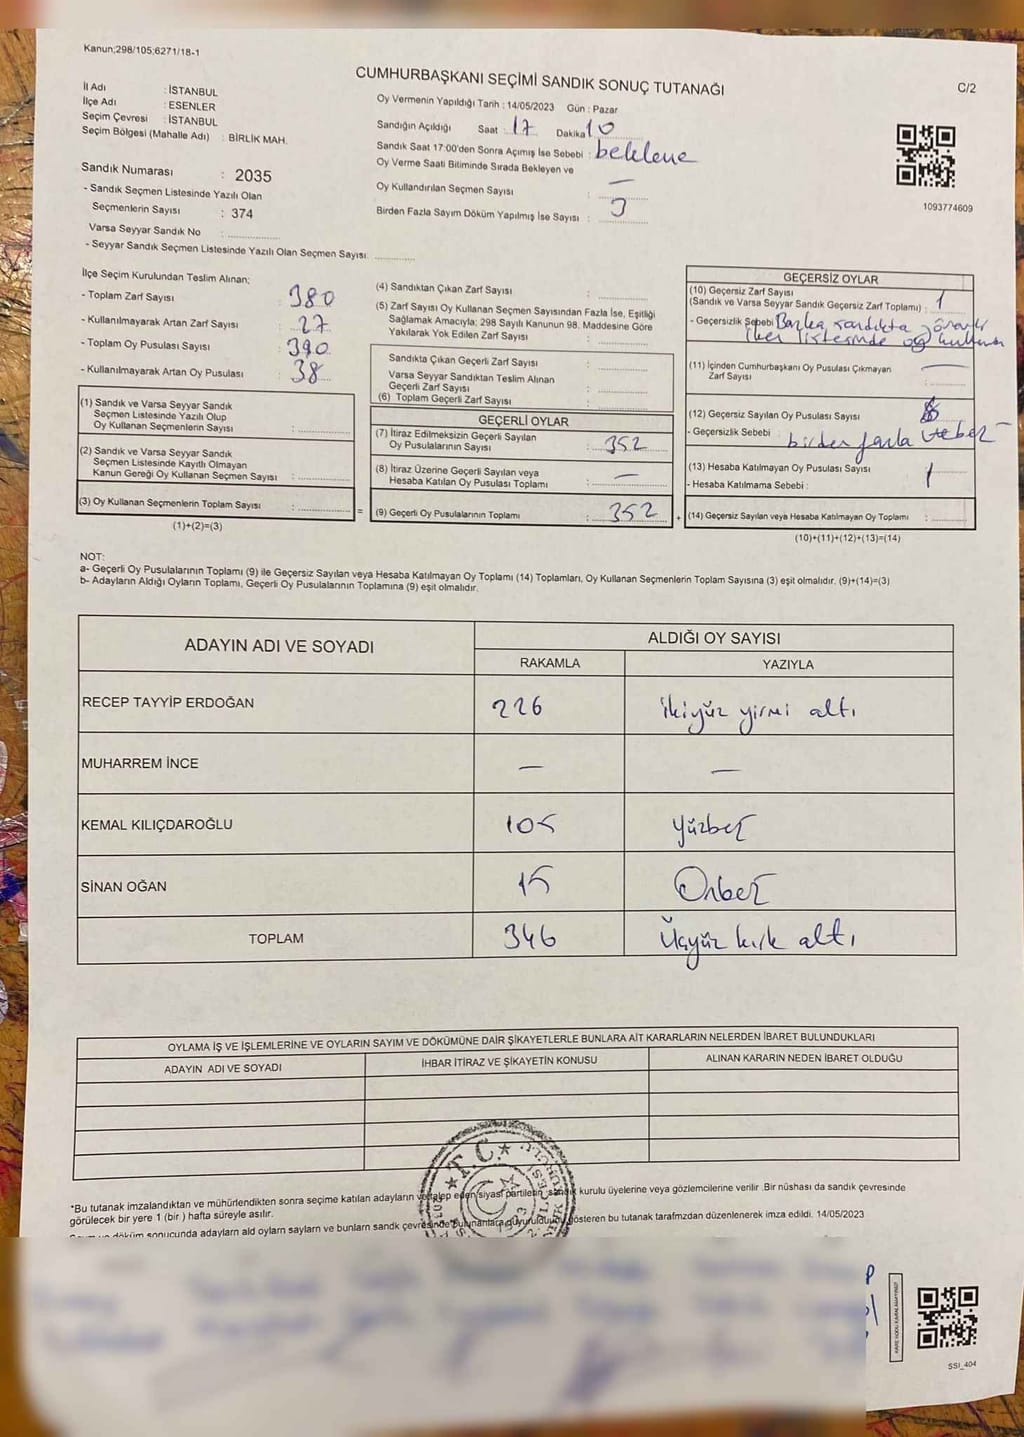 Kanun;298/105;6271/18-1
CUMHURBAŞKANI SEÇİMİ SANDIK SONUÇ TUTANAĞI
C/2
İl Adı : İSTANBUL
İlçe Adı : ESENLER
Seçim Çevresi : İSTANBUL
Seçim Bölgesi (Mahalle Adı) : BİRLİK MAH.
Sandık Numarası : 2035
- Sandık Seçmen Listesinde Yazılı Olan
Seçmenlerin Sayısı : 374
Varsa Seyyar Sandık No :
- Seyyar Sandık Seçmen Listesinde Yazılı Olan Seçmen Sayısı
Oy Vermenin Yapıldığı Tarih : 14/05/2023 Gün : Pazar
Sandığın Açıldığı Saat : 17 Dakika 10
Sandık Saat 17:00'den Sonra Açımış İse Sebebi : bekleme
Oy Verme Saati Bitiminde Sırada Bekleyen ve
Oy Kullandırılan Seçmen Sayısı : —
Birden Fazla Sayım Döküm Yapılmış İse Sayısı :
1093774609
İlçe Seçim Kurulundan Teslim Alınan;
- Toplam Zarf Sayısı : 380
- Kullanılmayarak Artan Zarf Sayısı : 27
- Toplam Oy Pusulası Sayısı : 390
- Kullanılmayarak Artan Oy Pusulası : 38
(1) Sandık ve Varsa Seyyar Sandık
Seçmen Listesinde Yazılı Olup
Oy Kullanan Seçmenlerin Sayısı :
(2) Sandık ve Varsa Seyyar Sandık
Seçmen Listesinde Kayıtlı Olmayan
Kanun Gereği Oy Kullanan Seçmen Sayısı :
(3) Oy Kullanan Seçmenlerin Toplam Sayısı :
(1)+(2)=(3)
=
(4) Sandıktan Çıkan Zarf Sayısı :
(5) Zarf Sayısı Oy Kullanan Seçmen Sayısından Fazla İse, Eşitliği
Sağlamak Amacıyla; 298 Sayılı Kanunun 98. Maddesine Göre
Yakılarak Yok Edilen Zarf Sayısı :
Sandıkta Çıkan Geçerli Zarf Sayısı :
Varsa Seyyar Sandıktan Teslim Alınan
Geçerli Zarf Sayısı :
(6) Toplam Geçerli Zarf Sayısı :
GEÇERLİ OYLAR
(7) İtiraz Edilmeksizin Geçerli Sayılan
Oy Pusulalarının Sayısı : 352
(8) İtiraz Üzerine Geçerli Sayılan veya
Hesaba Katılan Oy Pusulası Toplamı : —
(9) Geçerli Oy Pusulalarının Toplamı : 352
+
GEÇERSİZ OYLAR
(10) Geçersiz Zarf Sayısı
(Sandık ve Varsa Seyyar Sandık Geçersiz Zarf Toplamı) : 1
- Geçersizlik Sebebi Başka sandıkta görevli
listesinde oy
(11) İçinden Cumhurbaşkanı Oy Pusulası Çıkmayan
Zarf Sayısı : —
(12) Geçersiz Sayılan Oy Pusulası Sayısı
- Geçersizlik Sebebi : birden fazla
(13) Hesaba Katılmayan Oy Pusulası Sayısı : 1
- Hesaba Katılmama Sebebi :
(14) Geçersiz Sayılan veya Hesaba Katılmayan Oy Toplamı :
(10)+(11)+(12)+(13)=(14)
NOT:
a- Geçerli Oy Pusulalarının Toplamı (9) ile Geçersiz Sayılan veya Hesaba Katılmayan Oy Toplamı (14) Toplamları, Oy Kullanan Seçmenlerin Toplam Sayısına (3) eşit olmalıdır. (9)+(14)=(3)
b- Adayların Aldığı Oyların Toplamı, Geçerli Oy Pusulalarının Toplamına (9) eşit olmalıdır.
ADAYIN ADI VE SOYADI ALDIĞI OY SAYISI
RAKAMLA YAZIYLA
RECEP TAYYİP ERDOĞAN 226 ikiyüz yirmi altı
MUHARREM İNCE — —
KEMAL KILIÇDAROĞLU 105 Yüzbeş
SİNAN OĞAN 15 Onbeş
TOPLAM 346 Üçyüz kırk altı
OYLAMA İŞ VE İŞLEMLERİNE VE OYLARIN SAYIM VE DÖKÜMÜNE DAİR ŞİKAYETLERLE BUNLARA AİT KARARLARIN NELERDEN İBARET BULUNDUKLARI
ADAYIN ADI VE SOYADI İHBAR İTİRAZ VE ŞİKAYETİN KONUSU ALINAN KARARIN NEDEN İBARET OLDUĞU
T.C.
*Bu tutanak imzalandıktan ve mühürlendikten sonra seçime katılan adayların ve talep eden siyasi partilerin sandık kurulu üyelerine veya gözlemcilerine verilir .Bir nüshası da sandık çevresinde
görülecek bir yere 1 (bir ) hafta süreyle asılır.
sonucunda adayların ald oyların sayların ve bunların sandık çevresinde bulunanlara duyurulduğu gösteren bu tutanak tarafmzdan düzenlenerek imza edildi. 14/05/2023
SSI_404